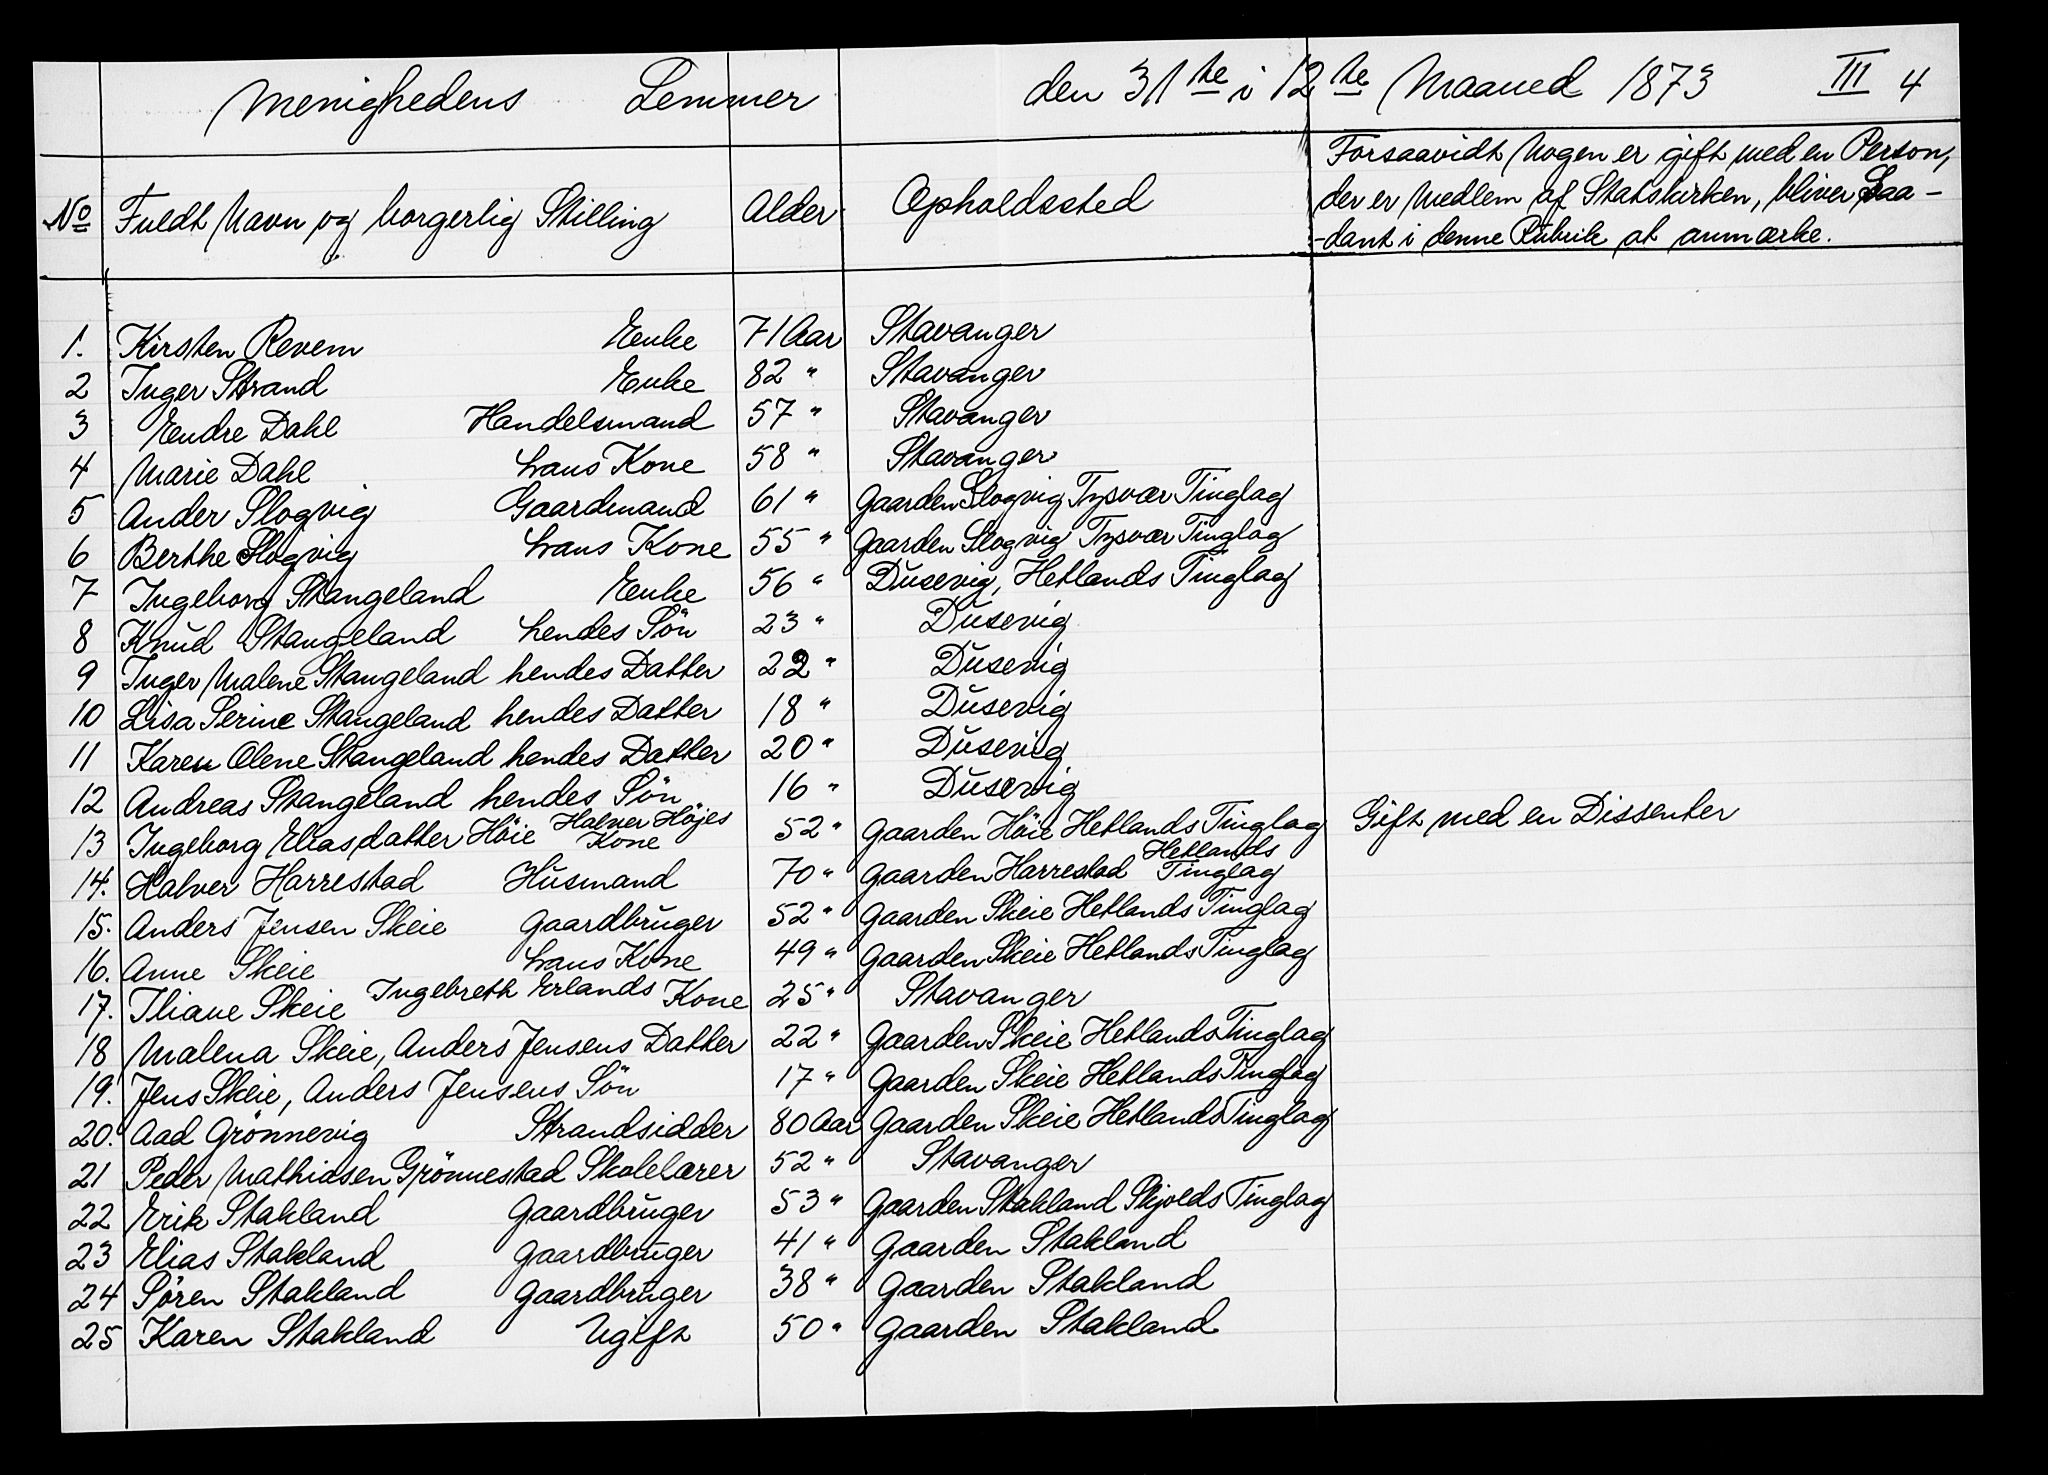 Menighedens Lemmer den 31te i 12te Maaned 1873 III 4
No Fuldt Navn og borgerlig Stilling Alder Opholdssted Forsaavidt Nogen er gift med en Person,
der er Medlem af Statskirken, bliver Saa-
-dant i denne Rubrik at anmærke.
1. Kirsten Revem Enke 71 Aar Stavanger
2 Inger Strand Enke 82 " Stavanger
3 Endre Dahl Handelsmand 57 " Stavanger
4 Marie Dahl hans Kone 58 " Stavanger
5 Ander Slogvig Gaardmand 61 " Gaarden Slogvig Tysvær Tinglag
6 Berthe Slogvig hans Kone 55 " Gaarden Slogvig Tysvær Tinglag
7 Ingeborg Stangeland Enke 56 " Dusevig, Hetlands Tinglag
8 Knud Stangeland hendes Sön 23 " Dusevig
9 Inger Malene Stangeland hendes Datter 22 " Dusevig
10 Lisa Serine Stangeland hendes Datter 18 " Dusevig
11 Karen Olene Stangeland hendes Datter 20 " Dusevig
12 Andreas Stangeland hendes Sön 16 " Dusevig
13 Ingeborg Eliasdatter Höie Halver Höjes Kone 52 " Gaarden Höie Hetlands Tinglag Gift med en Dissenter
14. Halver Harrestad Husmand 70 " Gaarden Harrestad Hetlands Tinglag
15. Anders Jensen Skeie Gaardbruger 52 " Gaarden Skeie Hetlands Tinglag
16. Anne Skeie hans Kone 49 " Gaarden Skeie Hetlands Tinglag
17. Iliane Skeie Ingebreth Erlands Kone 25 " Stavanger
18 Malena Skeie, Anders Jensens Datter 22 " Gaarden Skeie Hetlands Tinglag
19. Jens Skeie, Anders Jensens Sön 17 " Gaarden Skeie Hetlands Tinglag
20. Aad Grönnevig Strandsidder 80 Aar Gaarden Skeie Hetlands Tinglag
21 Peder Mathiasen Grönnestad Skolelærer 52 " Stavanger
22 Erik Stakland Gaardbruger 53 " Gaarden Stakland Skjolds Tinglag
23 Elias Stakland Gaardbruger 41 " Gaarden Stakland
24 Sören Stakland Gaardbruger 38 " Gaarden Stakland
25 Karen Stakland Ugift 50 " Gaarden Stakland